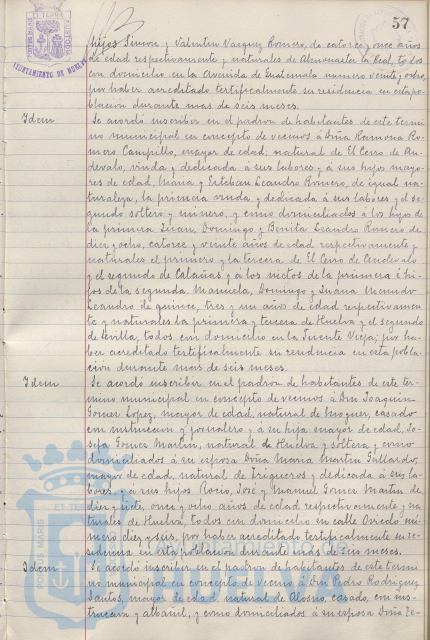 57
AYUNTAMIENTO DE HUELVA
hijos Simon y Valentin Vazquez Romero, de catorce y once años
de edad respectivamente y naturales de Almonaster la Real, todos
con domicilio en la Avenida de Guatemala numero veinte y ocho,
por haber acreditado certificalmente su residencia en esta po-
blacion durante mas de seis meses.
Idem Se acordó inscribir en el padron de habitantes de este termi-
no municipal en concepto de vecinos á Doña Ramona Ro-
mero Campillo, mayor de edad, natural de El Cerro de An-
devalo, viuda y dedicada á sus labores y á sus hijos mayo-
res de edad, Maria y Esteban Leandro Romero, de igual na-
turaleza, la primera viuda y dedicada á sus labores y el se-
gundo soltero y minero, y como domiciliados á los hijos de
la primera Juan, Domingo y Benita Leandro Romero de
diez y ocho, catorce y veinte años de edad respectivamente y
naturales el primero y la tercera de El Cerro de Andevalo
y el segundo de Calañas y á los nietos de la primera é hi-
jos de la segunda Manuela, Domingo y Juana
Leandro de quince, tres y un años de edad respectivamen-
te y naturales la primera y tercera de Huelva y el segundo
de Sevilla, todos con domicilio en la Fuente Vieja, por ha-
ber acreditado certificalmente su residencia en esta pobla-
cion durante mas de seis meses.
Idem Se acordó inscribir en el padron de habitantes de este ter-
mino municipal en concepto de vecinos á Don Joaquin
Gomez Lopez, mayor de edad, natural de Moguer, casado
con instruccion y jornalero y á su hija mayor de edad, Jo-
sefa Gomez Martin, natural de Huelva y soltera, y como
domiciliados á su esposa Doña Maria Martin Gallardo,
mayor de edad, natural de Trigueros y dedicada á sus la-
bores, y á sus hijos Rocio, José y Manuel Gomez Martin de
diez y siete, once y ocho años de edad respectivamente y na-
turales de Huelva, todos con domicilio en calle Oviedo nú-
mero diez y seis, por haber acreditado certificalmente su re-
sidencia en esta poblacion durante mas de seis meses.
Idem Se acordó inscribir en el padron de habitantes de este termi-
no municipal en concepto de vecino á Don Pedro Rodriguez
Santos, mayor de edad, natural de Alosno, casado, con ins-
truccion y albañil, y como domiciliados á su esposa Doña Te-